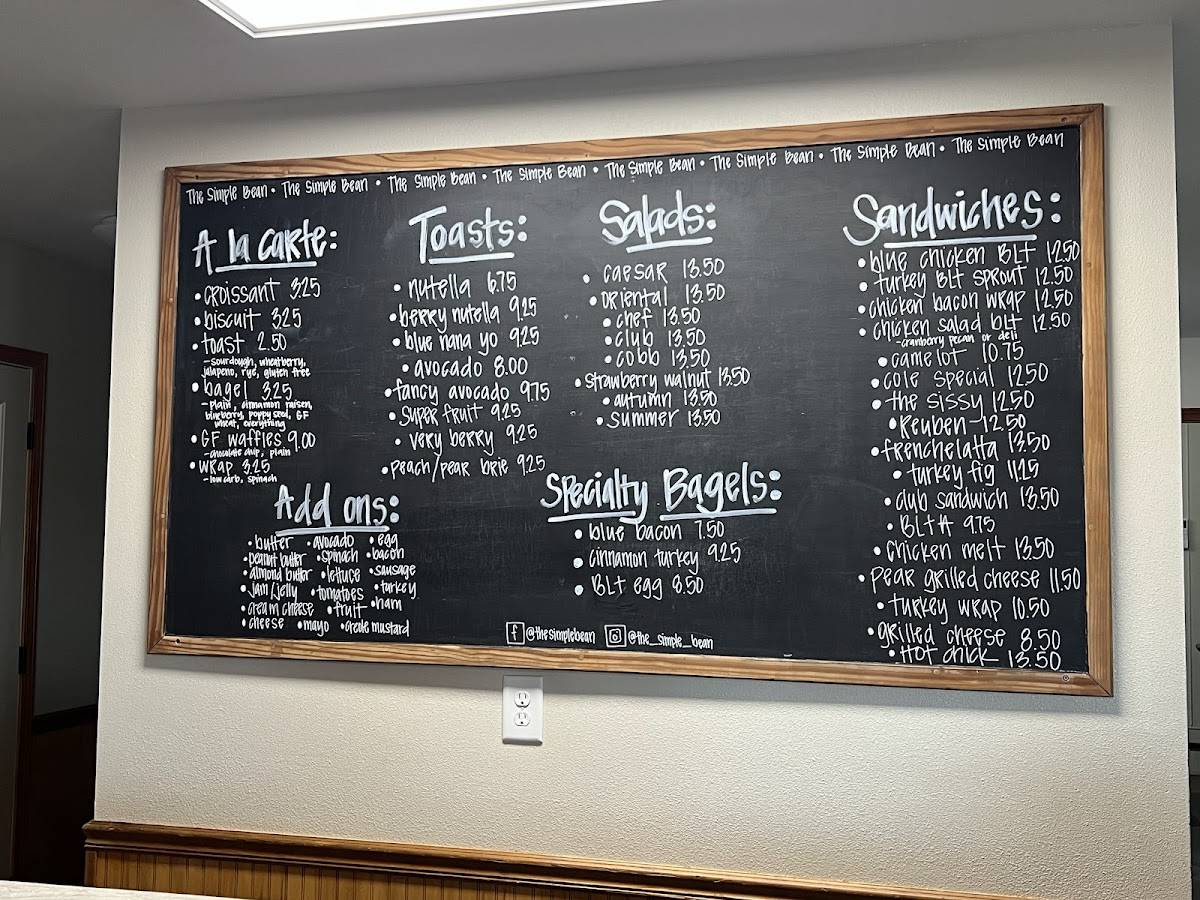 The Simple Bean • The Simple Bean • The Simple Bean • The Simple Bean • The Simple Bean • The Simple Bean • The Simple Bean • The Simple Bean
A la carte:
• croissant 3.25
• biscuit 3.25
• toast 2.50
- sourdough, wheatberry,
jalapeno, rye, gluten free
• bagel 3.25
- plain, cinnamon raisen,
blueberry, poppyseed, GF
wheat, everything
• GF waffles 9.00
- chocolate chip, plain
• wrap 3.25
- low carb, spinach
Toasts:
• nutella 6.75
• berry nutella 9.25
• blue nana yo 9.25
• avocado 8.00
• fancy avocado 9.75
• super fruit 9.25
• very berry 9.25
• peach/pear brie 9.25
Salads:
• caesar 13.50
• oriental 13.50
• chef 13.50
• club 13.50
• cobb 13.50
• strawberry walnut 13.50
• autumn 13.50
• summer 13.50
Sandwiches:
• blue chicken BLT 12.50
• turkey BLT sprout 12.50
• chicken bacon wrap 12.50
• chicken salad blt 12.50
- cranberry pecan or deli
• camelot 10.75
• cole special 12.50
• the sissy 12.50
• Reuben - 12.50
• frenchelatta 13.50
• turkey fig 11.25
• club sandwich 13.50
• BLTA 9.75
• chicken melt 13.50
• pear grilled cheese 11.50
• turkey wrap 10.50
• grilled cheese 8.50
• Hot chick 13.50
Add ons:
• butter • avocado • egg
• peanut butter • spinach • bacon
• almond butter • lettuce • sausage
• jam/jelly • tomatoes • turkey
• cream cheese • fruit • ham
• cheese • mayo • creole mustard
Specialty Bagels:
• blue bacon 7.50
• cinnamon turkey 9.25
• BLT egg 8.50
f @thesimplebean @the_simple_bean